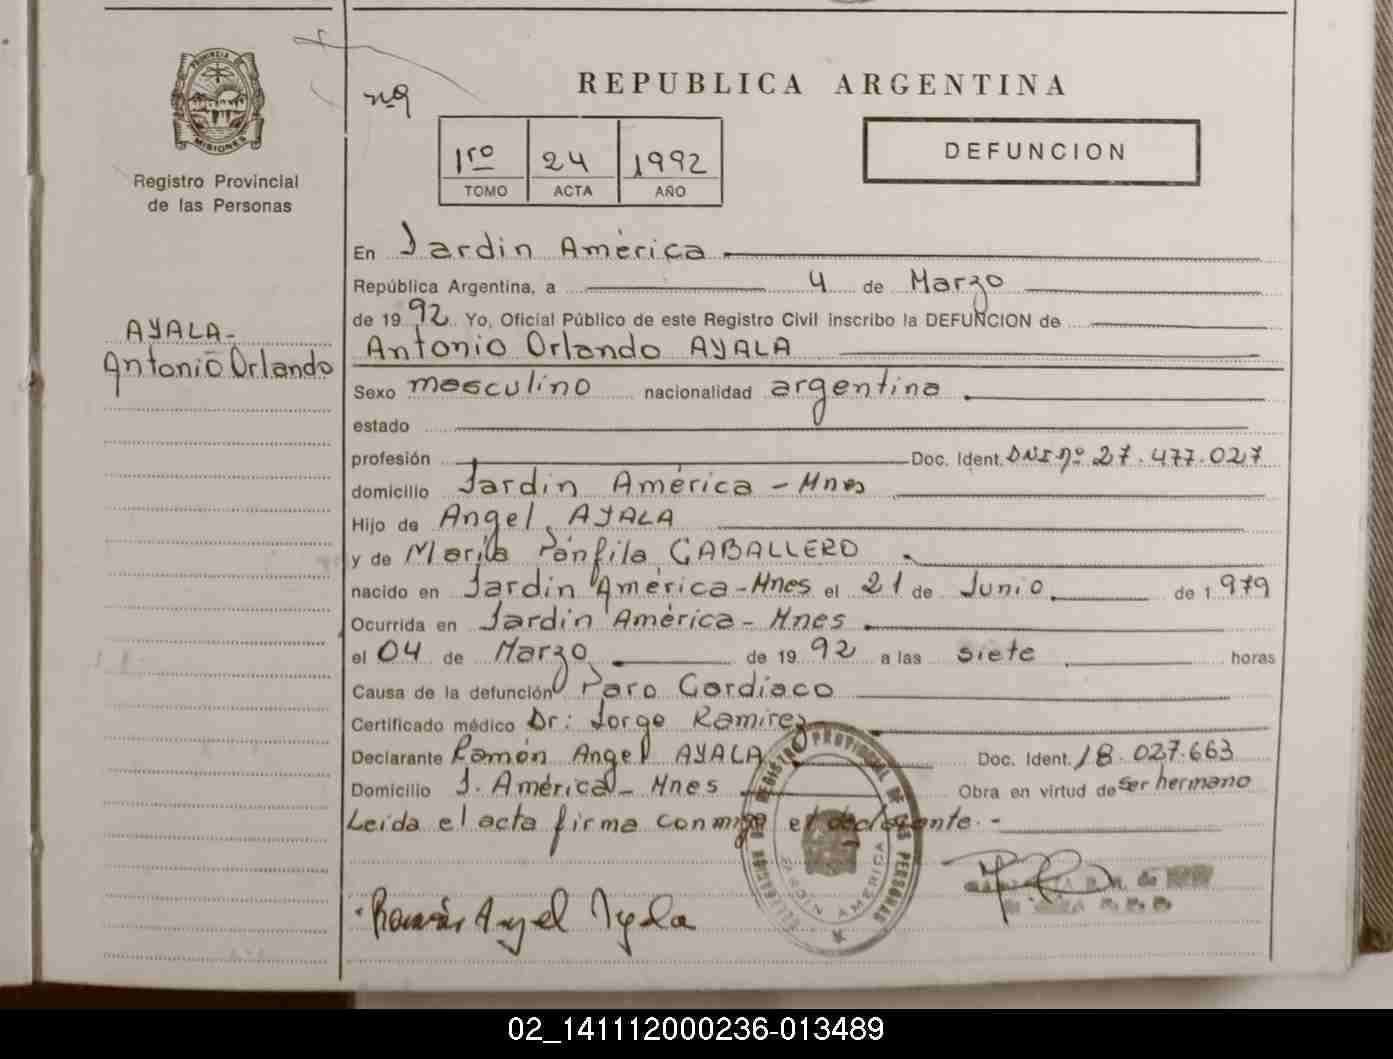 PROVINCIA
MISIONES
Registro Provincial
de las Personas
AYALA-
Antonio Orlando
nº9
REPUBLICA ARGENTINA
1ro 24 1992
TOMO ACTA AÑO
DEFUNCION
En Jardin América
República Argentina, a 4 de Marzo
de 1992 Yo, Oficial Público de este Registro Civil inscribo la DEFUNCION de
Antonio Orlando AYALA
Sexo masculino nacionalidad argentina
estado
profesión Doc. Ident. DNI nº 27.477.027
domicilio Jardin América - Mnes
Hijo de Angel AYALA
y de María Pánfila CABALLERO
nacido en Jardin América - Mnes el 21 de Junio de 1979
Ocurrida en Jardin América - Mnes
el 04 de Marzo de 1992 a las siete horas
Causa de la defunción Paro Cardiaco
Certificado médico Dr: Jorge Ramirez
Declarante Ramón Angel AYALA Doc. Ident. 18.027.663
Domicilio J. América - Mnes Obra en virtud de ser hermano
Leída el acta firma conmigo el declarante.-
REGISTRO PROVINCIAL DE LAS PERSONAS
JARDIN AMERICA
Ramón Angel Ayala
02_141112000236-013489